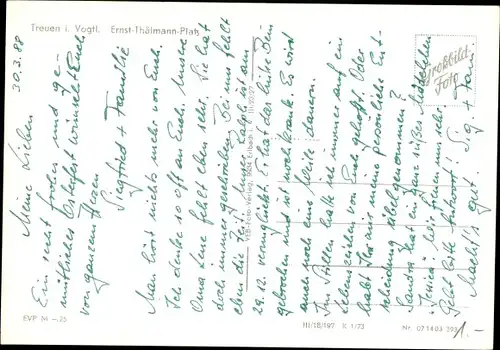 Treuen i. Vogtl. Ernst-Thälmann-Platz
30.3.88
Meine Lieben
Ein recht frohes und ge-
mütliches Osterfest wünscht Euch
von ganzem Herzen
Siegfried + Familie
Man hört nichts mehr von Euch.
Ich denke so oft an Euch. Unsere
Oma Lene fehlt eben sehr. Sie hat
doch immer geschrieben. Bei uns fehlt
eben die Zeit. Mein ist am
29.12. verunglückt. Er hat das linke Bein
gebrochen und ist noch krank. Es wird
auch noch eine Weile dauern.
Im Stillen habe ich immer auf ein
Lebenszeichen von Euch gehofft. Oder
habt Ihr mir meine persönliche Ent-
scheidung übel genommen?
Sandra hat ein ganz süßes Mädelchen
"Jessica" Wir freuen uns sehr.
Gebt bitte Antwort!
Macht's gut. Sig. + Fam.
Echtbild-
Foto
VEB Foto-Verlag, 9262 Erlbach
EVP M -,25
III/18/197 K 1/73
Nr. 07 14 03 393
1.-